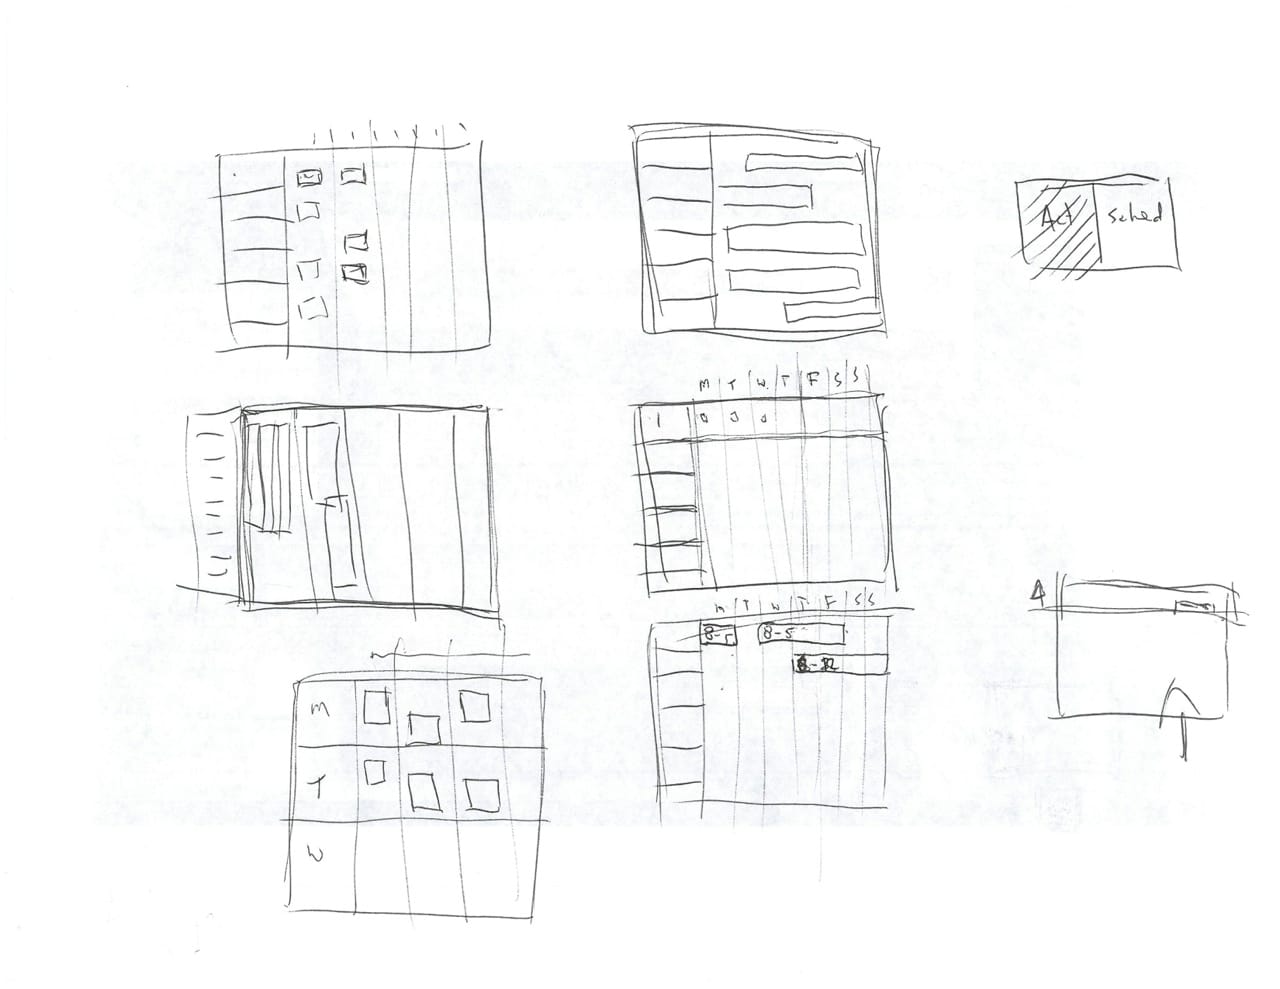 Act Sched
M T W T F S S
1
M T W T F S S
8-5 8-5
M
T
W